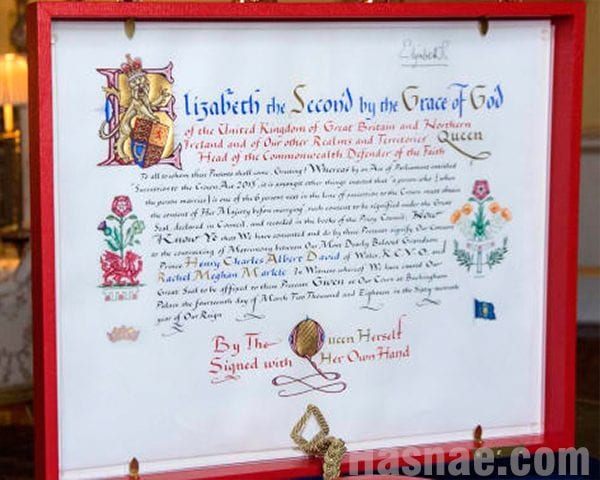 Elizabeth R
Elizabeth the Second by the Grace of God
of the United Kingdom of Great Britain and Northern
Ireland and of Our other Realms and Territories Queen
Head of the Commonwealth Defender of the Faith
To all to whom these Presents shall come, Greeting! Whereas by an Act of Parliament entitled
Succession to the Crown Act 2013, it is amongst other things enacted that "a person who (when
the person marries) is one of the 6 persons next in the line of succession to the Crown must obtain
the consent of Her Majesty before marrying" such consent to be signified under the Great
Seal, declared in Council, and recorded in the books of the Privy Council Now
Know Ye that We have consented and do by these Presents signify Our Consent
to the contracting of Matrimony between Our Most Dearly Beloved Grandson
Prince Henry Charles Albert David of Wales, K.C.V.O. and
Rachel Meghan Markle In Witness whereof We have caused Our
Great Seal to be affixed to these Presents Given at Our Court at Buckingham
Palace the fourteenth day of March Two Thousand and Eighteen in the Sixty-seventh
year of Our Reign
By The Queen Herself
Signed with Her Own Hand
Hasnae.com